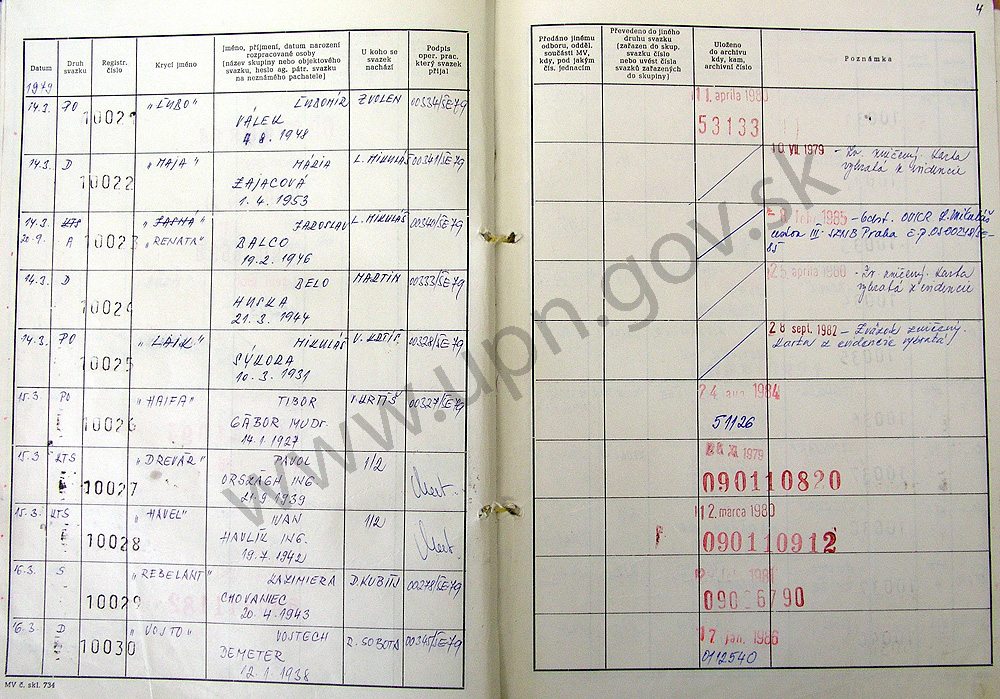 4
Datum
Druh svazku
Registr. číslo
Krycí jméno
Jméno, příjmení, datum narození rozpracované osoby (název skupiny nebo objektového svazku, heslo ag. pátr. svazku na neznámého pachatele)
U koho se svazek nachází
Podpis oper. prac. který svazek přijal
Předáno jinému odboru, odděl. součásti MV, kdy, pod jakým čís. jednacím
Převedeno do jiného druhu svazku (zařazen do skup. svazku nebo uvést čísla svazků zařazených do skupiny)
Uloženo do archivu kdy, kam, archivní číslo
Poznámka
1979
14.3. PO 10021 "ĽUBO" ĽUBOMÍR ZVOLEN 00334/SE79 11. apríla 1980
VÁLEK
8. 1948
53133
14.3. D 10022 "MAJA" MÁRIA L. MIKULÁŠ 00341/SE79 10 VII. 1979 - Zv. zničený. Karta
ZAJACOVÁ vybratá z evidencie
1. 4. 1953
14.3. KTS 10023 "JASNÁ" JAROSLAV L. MIKULÁŠ 00340/SE79 1985 - Odst. OVICR L. Mikuláš
20.9. A "RENATA" BALCO III. SNB Praba
19.2. 1946 85
14.3. D 10024 BELO MARTIN 00333/SE79 25 apríla 1980 - Zv. zničený. Karta
HUSKA vybratá z evidencie
21. 3. 1944
14.3. PO 10025 "LAIK" MIKULÁŠ V. KRTÍŠ 00328/SE79 28 sept. 1982 - Zväzok zničený.
SÝKORA Karta z evidencie vybratá!
10. 3. 1931
15.3 PO 10026 "HAIFA" TIBOR V. KRTÍŠ 00327/SE79 24 aug. 1984
GÁBOR MUDr. 51126
14.1. 1927
15.3 KTS 10027 "DREVÁR" PAVOL 1/2 XI. 1979
ORSZÁGH ING. 090110820
21.9. 1939
15.3. KTS 10028 "HAVEL" IVAN 1/2 12. marca 1980
HAVLÍK ING. 090110912
19.7. 1942
16.3. S 10029 "REBELANT" KAZIMIERA D. KUBÍN 00278/SE79
CHOVANIEC
20. 4. 1943
16.3 D 10030 "VOJTO" VOJTECH R. SOBOTA 00345/SE79 17 jan. 1986
DEMETER 0112540
12. 1. 1938
MV č. skl. 734
www.upn.gov.sk